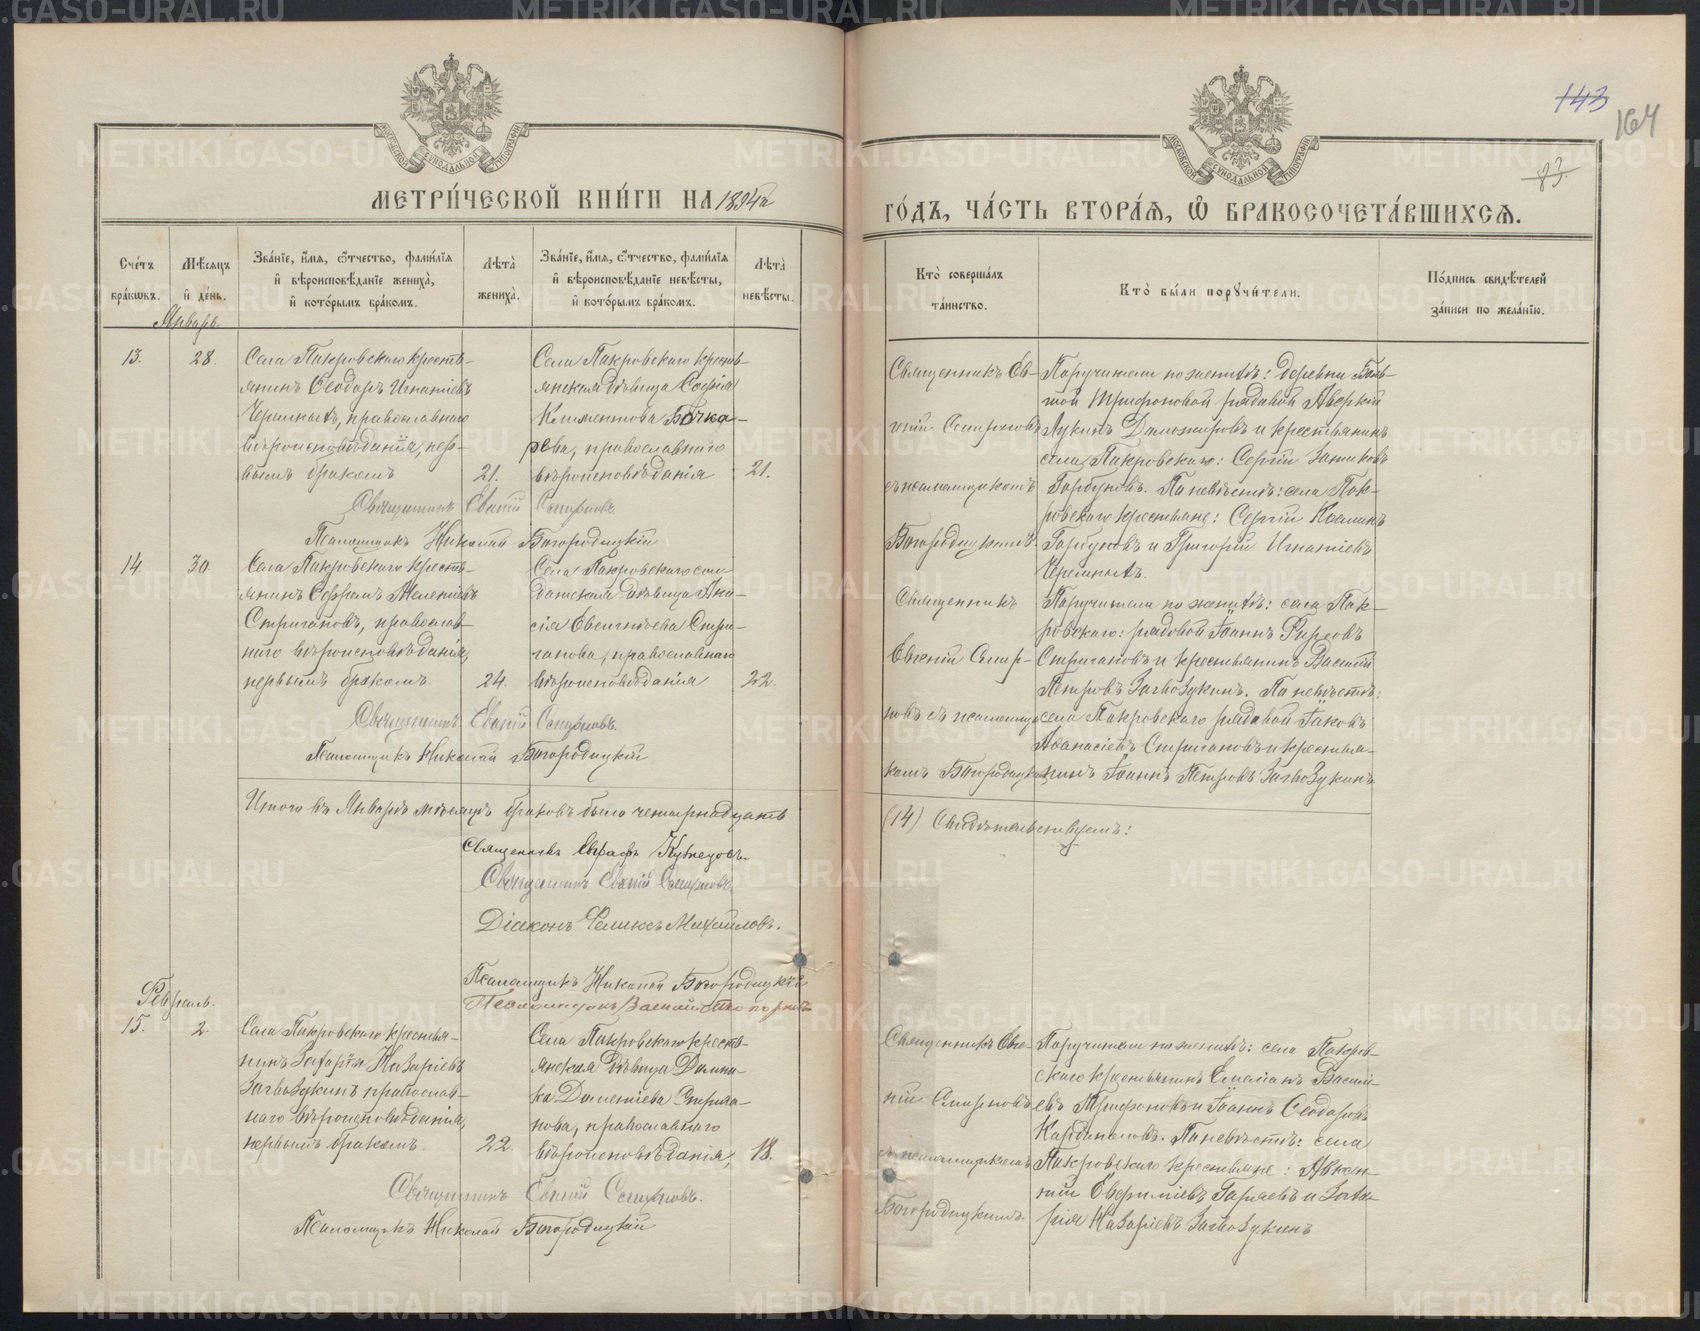 МЕТРИ́ЧЕСКОЙ КНИ́ГИ НА 1894й
ГО́ДЪ, ЧА́СТЬ ВТОРА́Я, Ѡ БРАКОСОЧЕТА́ВШИХСЯ.
143
164
83.
Сче́тъ бра́кωвъ.
Мѣ́сяцъ и҆ де́нь.
Зва́нїе, и҆́мя, ѻ҆́тчество, фами́лїя
и҆ вѣроисповѣ́данїе жениха̀,
и҆ кото́рымъ бра́комъ.
Лѣта̀ жениха̀.
Зва́нїе, и҆́мя, ѻ҆́тчество, фами́лїя
и҆ вѣроисповѣ́данїе невѣ́сты,
и҆ кото́рымъ бра́комъ.
Лѣта̀ невѣ́сты.
Кто̀ соверша́лъ
та́инство.
Кто̀ бы́ли порꙋчи́тели.
По́дпись свидѣ́телей
за́писи по жела́нїю.
Январь
13.
28.
Села Покровскаго кресть-
янинъ Ѳеодоръ Игнатіевъ
Черемныхъ, православнаго
вѣроисповѣданія, пер-
вымъ бракомъ
21.
Села Покровскаго кресть-
янская дѣвица Софія
Климентова Бочка-
рева, православнаго
вѣроисповѣданія
21.
Священникъ Ев-
геній Смирновъ
съ псаломщикомъ
Богородицкимъ
Поручители по женихѣ: деревни Боль-
шой Трифоновой рядовой Аверкій
Лукинъ Доможировъ и крестьянинъ
села Покровскаго: Сергій
Горбуновъ. По невѣстѣ: села Пок-
ровскаго крестьяне: Сергій Козминъ
Горбуновъ и Григорій Игнатіевъ
Черемныхъ.
Священникъ Евгеній Смирновъ
Псаломщикъ Николай Богородицкій
14.
30.
Села Покровскаго кресть-
янинъ Ефремъ Мелентіевъ
Стригановъ, православ-
наго вѣроисповѣданія,
первымъ бракомъ.
24.
Села Покровскаго сол-
датская дѣвица Ани-
сія Евгеніева Стри-
ганова, православнаго
вѣроисповѣданія
22.
Священникъ
Евгеній Смир-
новъ съ псаломщи-
комъ Богородицкимъ
Поручители по женихѣ: села Пок-
ровскаго: рядовой Іоаннъ Фирсовъ
Стригановъ и крестьянинъ Василій
Петровъ Загвоздкинъ. По невѣстѣ:
села Покровскаго рядовой Іаковъ
Аѳанасіевъ Стригановъ и крестья-
нинъ Іоаннъ Петровъ Загвоздкинъ
Священникъ Евгеній Смирновъ.
Псаломщикъ Николай Богородицкій
Итого въ Январѣ мѣсяцѣ браковъ было четырнадцать
(14) Свидѣтельствуемъ:
Священникъ Евграфъ Кузнецовъ.
Священникъ Евгеній Смирновъ.
Діаконъ Феликсъ Михайловъ.
Псаломщикъ Николай Богородицкій
Псаломщикъ Василій
Февраль.
15.
2.
Села Покровскаго крестья-
нинъ Захарія Назаріевъ
Загвоздкинъ православ-
наго вѣроисповѣданія,
первымъ бракомъ.
22.
Села Покровскаго кресть-
янская дѣвица Домни-
ка Дометіева Стрига-
нова, православнаго
вѣроисповѣданія,
18.
Священникъ Евге-
ній Смирновъ
съ псаломщикомъ
Богородицкимъ.
Поручители по женихѣ: села Покров-
скаго крестьянинъ Емеліанъ Василі-
евъ Трифоновъ и Іоаннъ Ѳеодоровъ
Кардаполовъ. По невѣстѣ: села
Покровскаго крестьяне: Авксен-
тій Евфиміевъ Горяевъ и Заха-
рія Назаріевъ Загвоздкинъ
Священникъ Евгеній Смирновъ.
Псаломщикъ Николай Богородицкій
METRIKI.GASO-URAL.RU